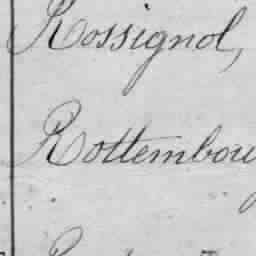 Rossignol,
Rottembou